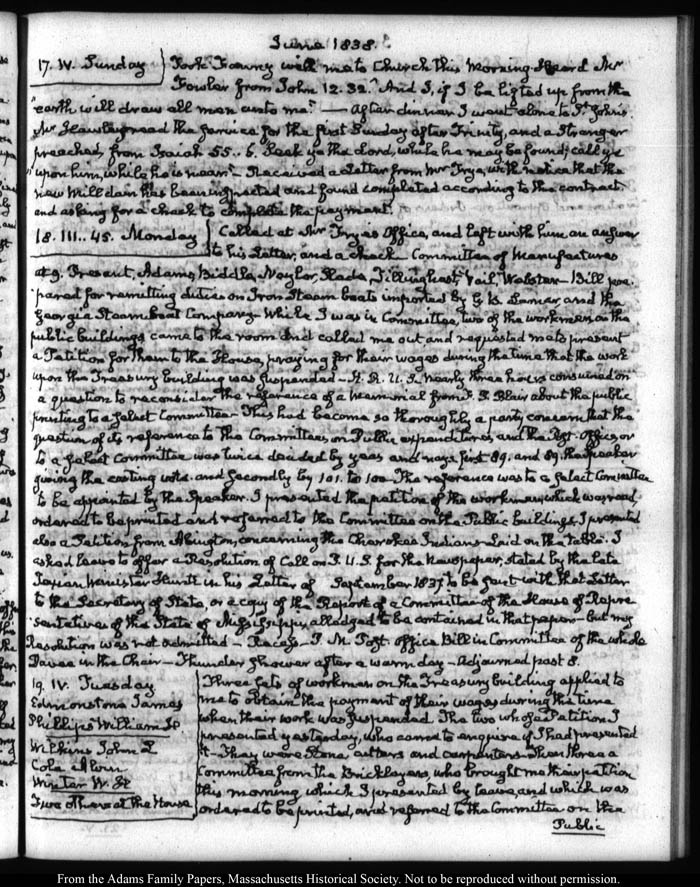 June 1838.
17. IV. Sunday
Took Fanny with me to Church this Morning. Heard Mr
Fowler from John 12. 32. "And I, if I be lifted up from the
"earth will draw all men unto me." — After dinner I went alone to St. John's
Mr Hawley read the Service for the first Sunday after Trinity, and a Stranger
preached, from Isaiah 55.. 6. Seek ye the Lord, while he may be found; call ye
"upon him, while he is near." Received a Letter from Mr Frye, with notice that the
new Mill dam has been inspected and found completed according to the contract
and asking for a check to complete the payment.
18. III.. 45. Monday
Called at Mr Frye's Office, and left with him an answer
to his Letter, and a check. Committee of Manufactures
at 9. Present, Adams, Biddle, Naylor, Slade, Tillinghast, Vail, Webster — Bill pre-
pared for remitting duties on Iron Steam boats imported by G. B. Lamar, and the
Georgia Steam boat Company — While I was in Committee, two of the workmen on the
public buildings came to the room and called me out and requested me to present
a Petition for them to the House, praying for their wages during the time that the work
upon the Treasury building was suspended — H. R. U. S. nearly three hours consumed on
a question to reconsider the reference of a memorial from F. P. Blair about the public
printing to a select Committee — This had become so thoroughly a party concern that the
question of its reference to the Committees on Public expenditures, and the Post-Office, or
to a select Committee was twice decided by yeas and nays first 89. and 89. the Speaker
giving the casting vote. and secondly by 101. to 100 — The reference was to a select Committee
to be appointed by the Speaker. I presented the petition of the workmen, which was read
ordered to be printed and referred to the Committee on the Public buildings, I presented
also a Petition from Abington, concerning the Cherokee Indians — Laid on the table. I
asked leave to offer a Resolution of Call on P. U. S. for the Newspaper, stated by the late
Texian Minister Hunt in his Letter of September 1837 to be sent with that Letter
to the Secretary of State, or a copy of the Report of a Committee of the House of Repre-
sentatives of the State of Mississippi, alledged to be contained in that paper — but my
Resolution was not admitted — Recess — P. M. Post-office Bill in Committee of the whole
in the Chair — Thunder Shower after a warm day — Adjourned past 8.
19. IV. Tuesday
Edmonstone James
Phillips William P
Wilkins John L
Cole
Winter W. H
Two others at the House
Three sets of workmen on the Treasury building applied to
me to obtain the payment of their wages during the time
when their work was suspended. The two whose Petition I
presented yesterday, who came to enquire if I had presented
it — They were Stone cutters and carpenters — Then three a
Committee from the Bricklayers, who brought me their petition
this morning which I presented by leave, and which was
ordered to be printed, and referred to the Committee on the
Public
From the Adams Family Papers, Massachusetts Historical Society. Not to be reproduced without permission.